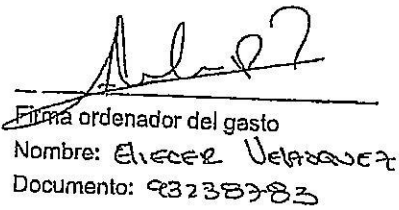 Firma ordenador del gasto
Nombre: ELIECER VELAZQUEZ
Documento: 93238783